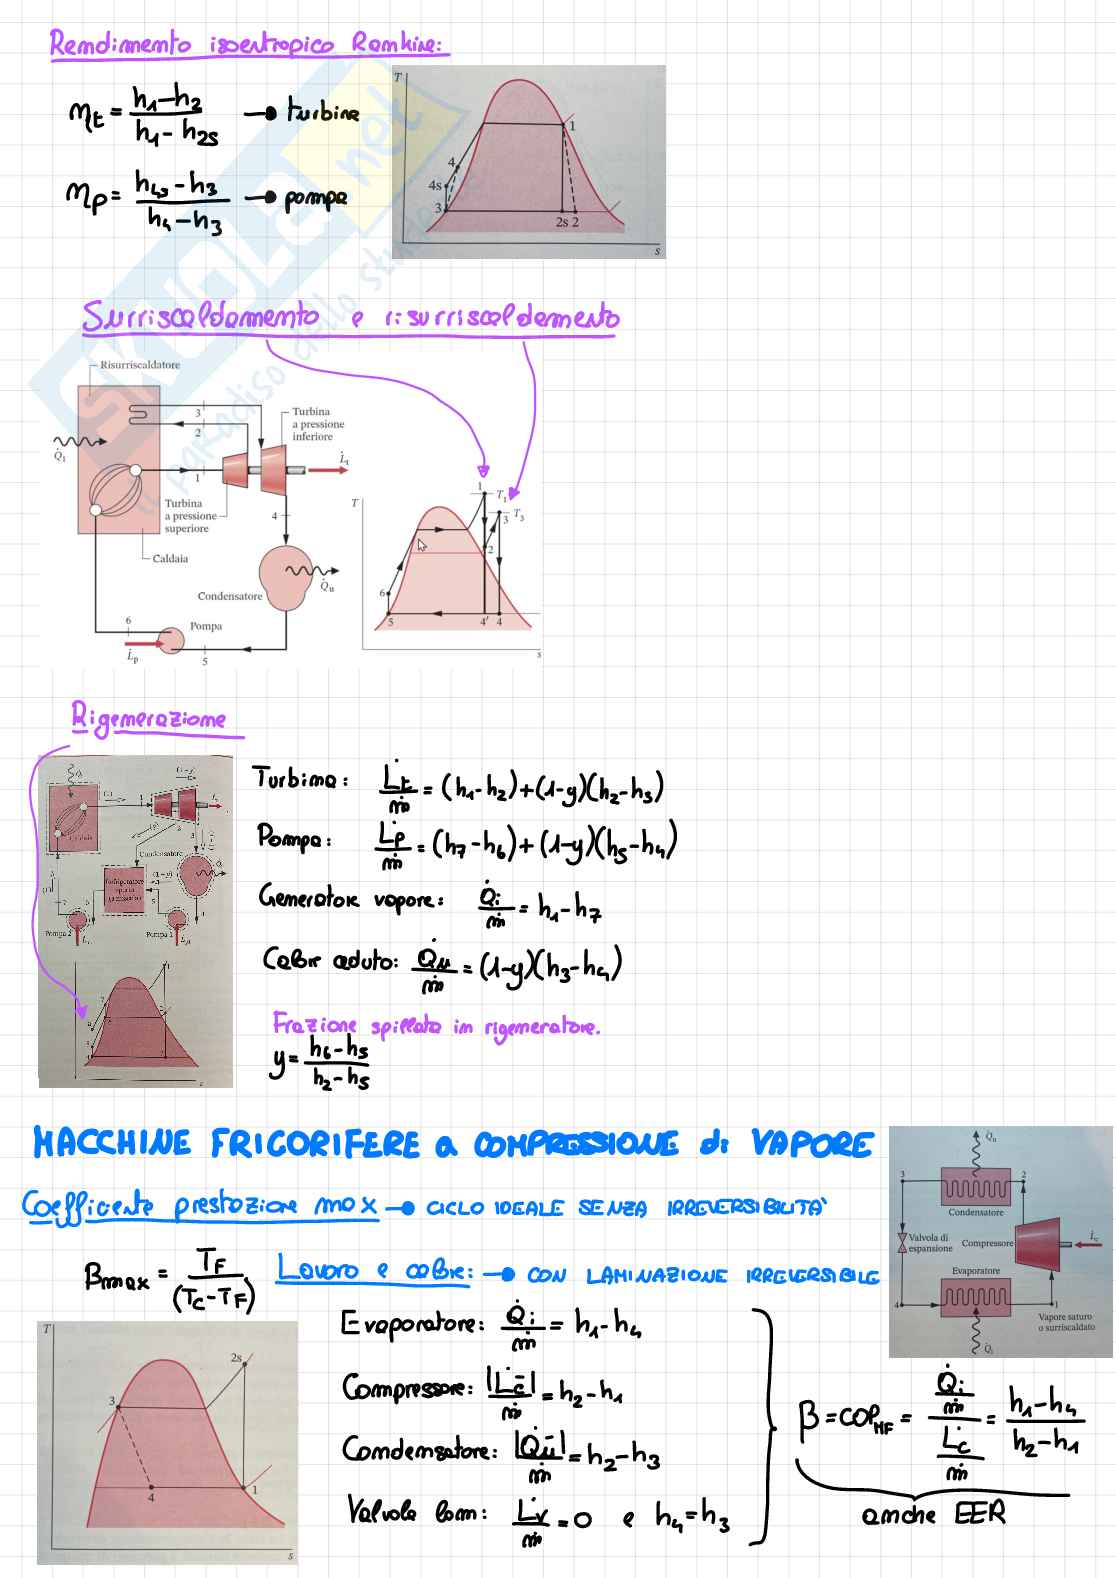 Rendimento isoentropico Rankine:
ηt = (h1-h2)/(h1-h2s) → turbina
ηp = (h4s-h3)/(h4-h3) → pompa
T
1
4
4s
3
2s 2
s
SKUOLA.net
il paradiso dello studente
Surriscaldamento e risurriscaldamento
Risurriscaldatore
3
2
Turbina
a pressione
inferiore
Q̇i
L̇t
1
Turbina
a pressione
superiore
4
Caldaia
Condensatore
Q̇u
6
Pompa
L̇p
5
T
1
T1
3
T3
2
6
5
4' 4
s
Rigenerazione
(1-y)
Condensatore
Pompa 2
Pompa 1
Turbina: L̇t/ṁ = (h1-h2)+(1-y)(h2-h3)
Pompa: L̇p/ṁ = (h7-h6)+(1-y)(h5-h4)
Generatore vapore: Q̇i/ṁ = h1-h7
Calore ceduto: Q̇u/ṁ = (1-y)(h3-h4)
Frazione spillata in rigeneratore.
y = (h6-h5)/(h2-h5)
MACCHINE FRIGORIFERE a COMPRESSIONE di VAPORE
Coefficiente prestazione max → CICLO IDEALE SENZA IRREVERSIBILITA'
βmax = TF/(TC-TF)
Lavoro e calore: → CON LAMINAZIONE IRREVERSIBILE
Evaporatore: Q̇i/ṁ = h1-h4
Compressore: |L̇c⁻|/ṁ = h2-h1
Condensatore: |Q̇u⁻|/ṁ = h2-h3
Valvola lam: L̇v/ṁ = 0 e h4=h3
β = COPMF = (Q̇i/ṁ)/(L̇c/ṁ) = (h1-h4)/(h2-h1)
anche EER
Q̇u
3
2
Condensatore
Valvola di
espansione
Compressore
L̇c
Evaporatore
4
1
Vapore saturo
o surriscaldato
Q̇i
T
2s
3
4
1
s